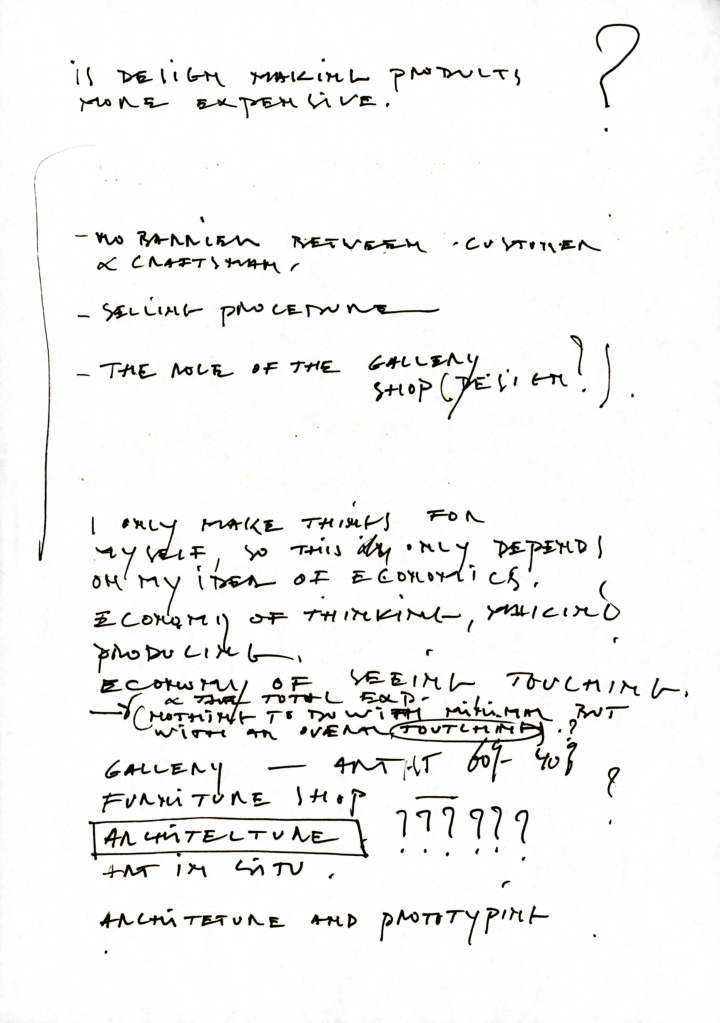 IS DESIGN MAKING PRODUCTS ?
MORE EXPENSIVE.
- NO BARRIER BETWEEN CUSTOMER
& CRAFTSMAN.
- SELLING PROCEDURE
- THE ROLE OF THE GALLERY
SHOP (DESIGN?).
I ONLY MAKE THINGS FOR
MYSELF, SO THIS ONLY DEPENDS
ON MY IDEA OF ECONOMICS.
ECONOMY OF THINKING, MAKING
PRODUCING.
ECONOMY OF SEEING TOUCHING.
& THE TOTAL EXP.
→ (NOTHING TO DO WITH MINIMAL BUT
WITH AN OVERAL TOUTCHING). ?
GALLERY — ARTIST 60%- 40%
FURNITURE SHOP ?
ARCHITECTURE ??????
ART IN SITU.
ARCHITETURE AND PROTOTYPING